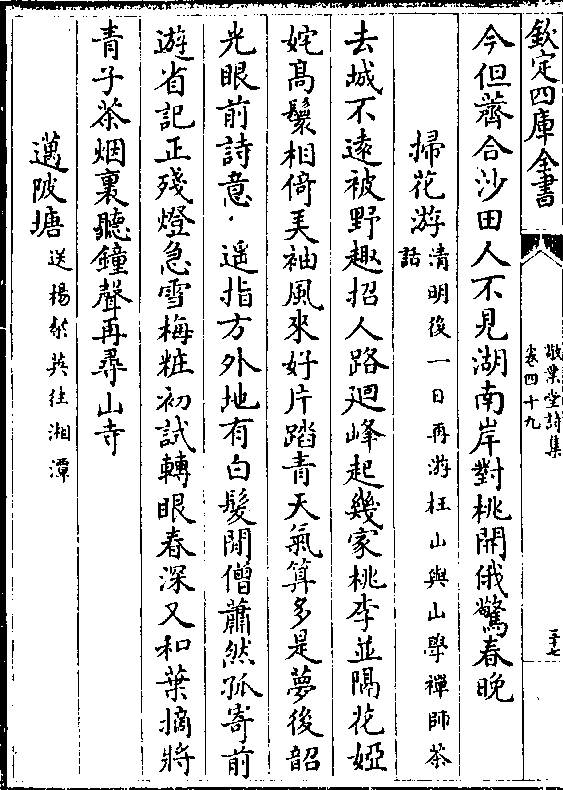 欽定四庫全書
敬業堂詩集
卷四十九
三十七
今但薺合沙田人不見湖南岸對桃開俄驚春晚
掃花游清明後一日再游枉山與山學禪師茶
話
去城不遠被野趣招人路廻峰起幾家桃李並隔花婭
姹髙鬟相倚美袖風來好片踏青天氣算多是夢後韶
光眼前詩意 遥指方外地有白髮閒僧蕭然孤寄前
遊省記正殘燈急雪梅粧初試轉眼春深又和葉摘將
青子茶烟裏聽鐘聲再尋山寺
邁陂塘送楊 英往湘潭